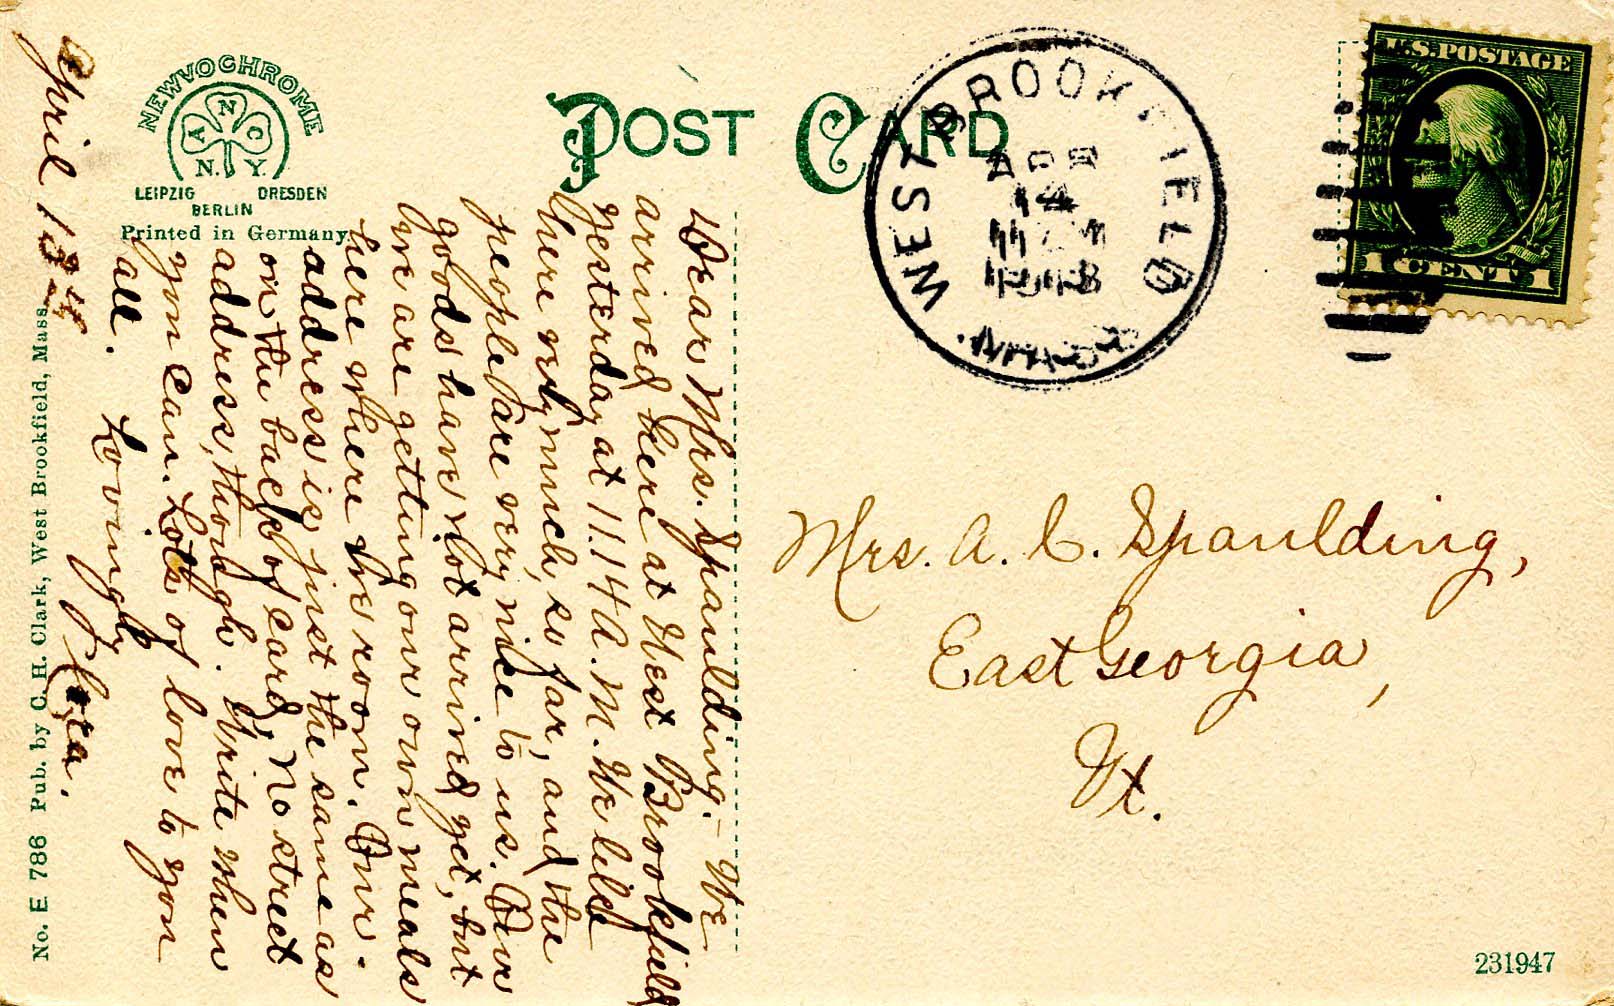 NEWVOCHROME
A N C
N. Y.
LEIPZIG DRESDEN
BERLIN
Printed in Germany.
POST CARD
WEST BROOKFIELD
APR
14
U.S. POSTAGE
1 CENT 1
April 13th
Dear Mrs. Spaulding:- We
arrived here at West Brookfield
yesterday at 11.14 A.M. We like
here very much, so far, and the
people are very nice to us. Our
goods have not arrived yet, but
we are getting our own meals
here where we room. Our
address is just the same as
on the back of card, No street
address, though. Write when
you can. Lots of love to you
all.
Lovingly
Mrs. A. C. Spaulding,
East Georgia,
Vt.
No. E 786 Pub. by C. H. Clark, West Brookfield, Mass.
231947